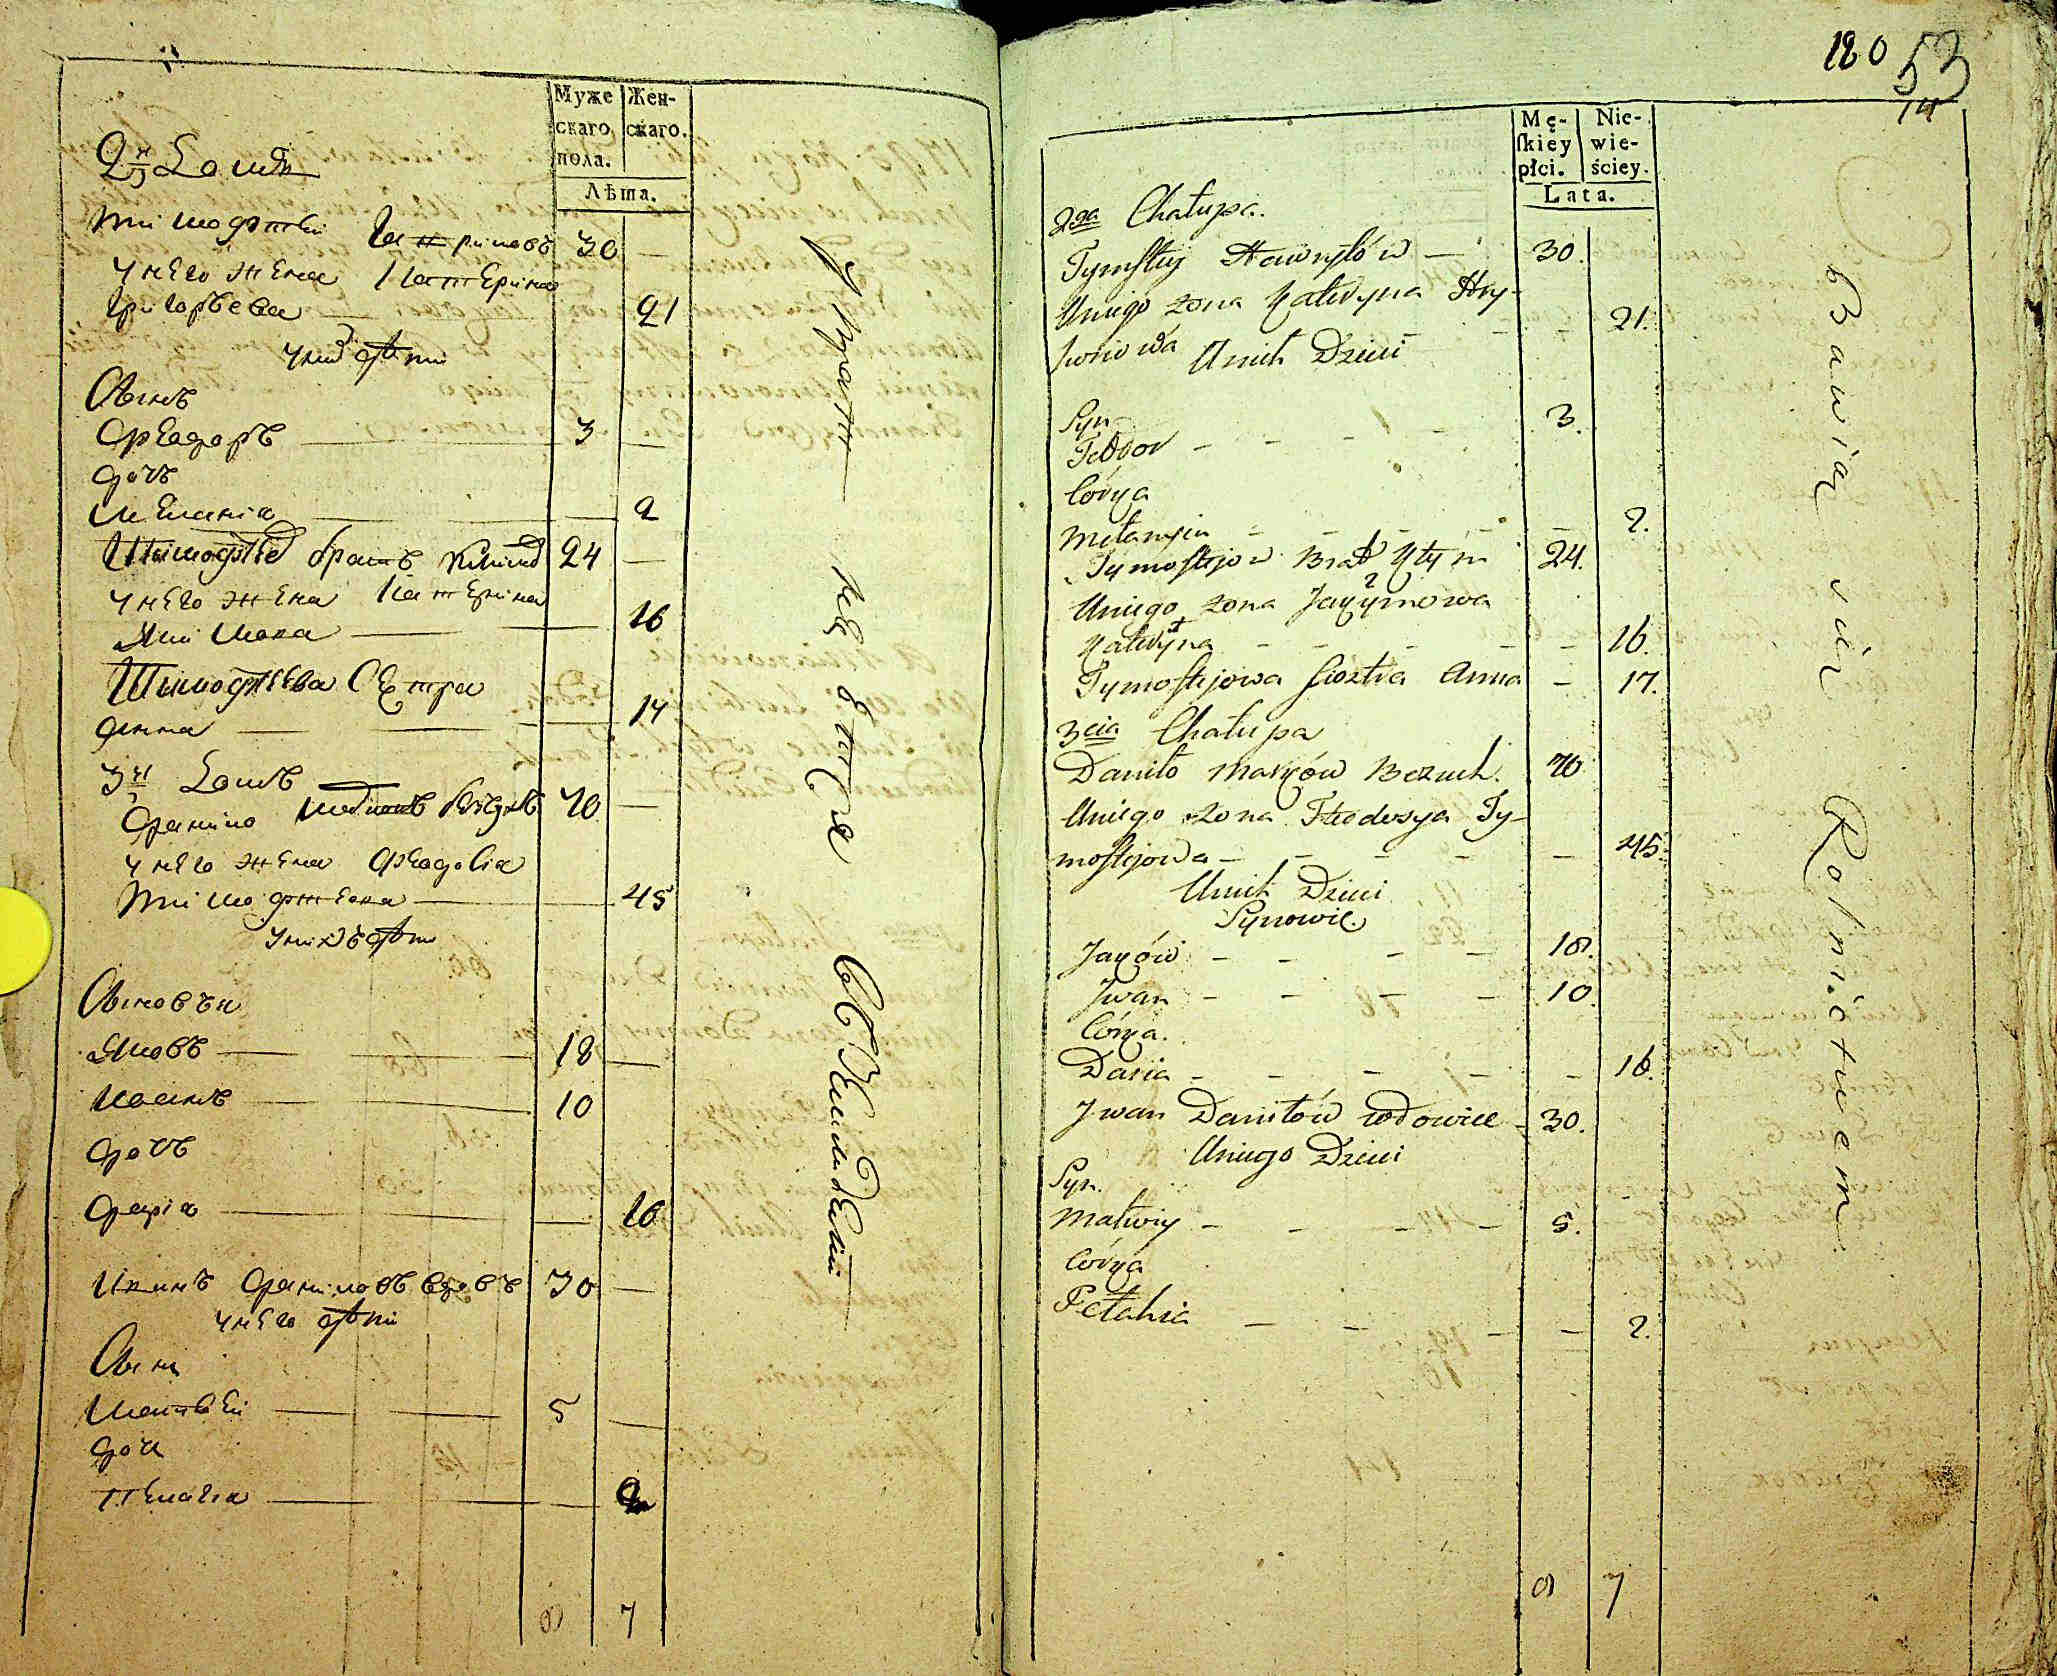 Муже
скаго
пола.
Жен-
скаго.
Лѣта.
2й Домъ
Тимофтей Гавриловъ 30 —
у него жена Катерина
Григорьева — 21
у них дѣти
Сынъ
Феодоръ — 3 —
дочь
Меланія — 2
Тимофѣя братъ Климъ 24 —
у него жена Катерина
Якимова — 16
Тимофѣева Сестра
Анна — 17
3й Домъ
Данило 70 —
у него жена Феодосія
Тимофтеева — 45
у нихъ дѣти
Сыновьи
Яковъ — 18 —
Иванъ — 10
дочь
Дарія — 16
Иванъ Даниловъ вдовъ 30 —
у него дѣти
Сын
Матвей — 5 —
доч
Пелагія — 2
8 7
120 53
14
Mę-
ſkiey
płci.
Nie-
wie-
ściey.
Lata.
2ga Chałupa.
Tymſtiy Hawryłów — 30.
Uniego żona Kateryna Hry-
horiowa 21.
Unich Dzieci
Syn
Fedor - - - - 3.
Córka
Mełanyia - - - - 2.
Tymoftejow Brat Kłym 24.
Uniego żona Jakymowa
Kateryna - - - - 16.
Tymoftejowa Siostra Anna - 17.
3cia Chałupa
Daniło Markow Bezuch. 70
Uniego żona Fteodosya Ty-
moftejowa - - - - 45.
Unich Dzieci
Synowie.
Jaków - - - - 18.
Jwan - - - - 10.
Córka.
Daria - - - - 16.
Jwan Daniłów wdowiec - 30.
Uniego Dzieci
Syn.
Matwiy - - - - 5.
Córka
Pełahia - - - - 2.
8 7
Bawią się Rolnictwem